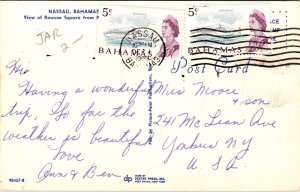 NASSAU, BAHAMAS
View of Rawson Square from P
JAR
2-
5¢
BAHAMAS
5¢
BAHAMAS
NASSAU
Post Card
Hi
Having a wonderful
trip, So far the
weather is beautiful
Love
Ann & Ben
Miss Moore
& son
241 McLean Ave
Yonkers NY
U.S.A
90457-B
dp
DEXTER PRESS, INC.
WEST NYACK, NEW YORK